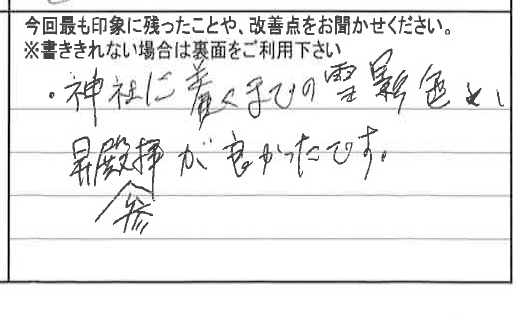 今回最も印象に残ったことや、改善点をお聞かせください。
※書ききれない場合は裏面をご利用下さい
・神社に着くまでの雪景色と、
昇殿拝が良かったです。
参